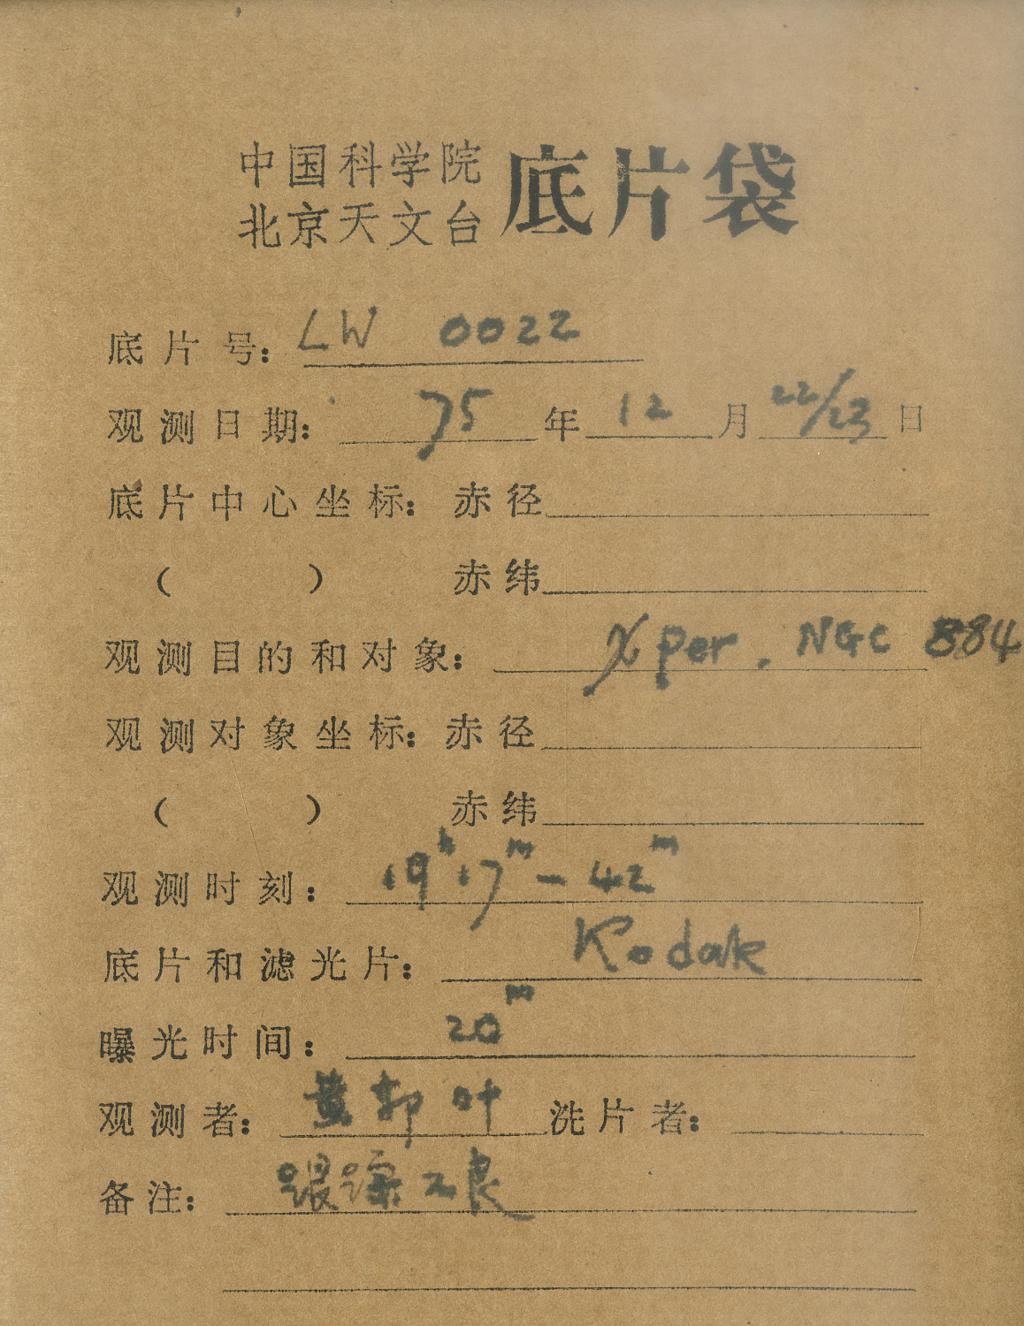 中国科学院
北京天文台 底片袋
底片号: LW 0022
观测日期: 75年12月22/23日
底片中心坐标: 赤径
( ) 赤纬
观测目的和对象: χ per. NGC 884
观测对象坐标: 赤径
( ) 赤纬
观测时刻: 19h17m-42m
底片和滤光片: Kodak
曝光时间: 20m
观测者: 黄 郭 叶 洗片者:
备注: 跟踪不良